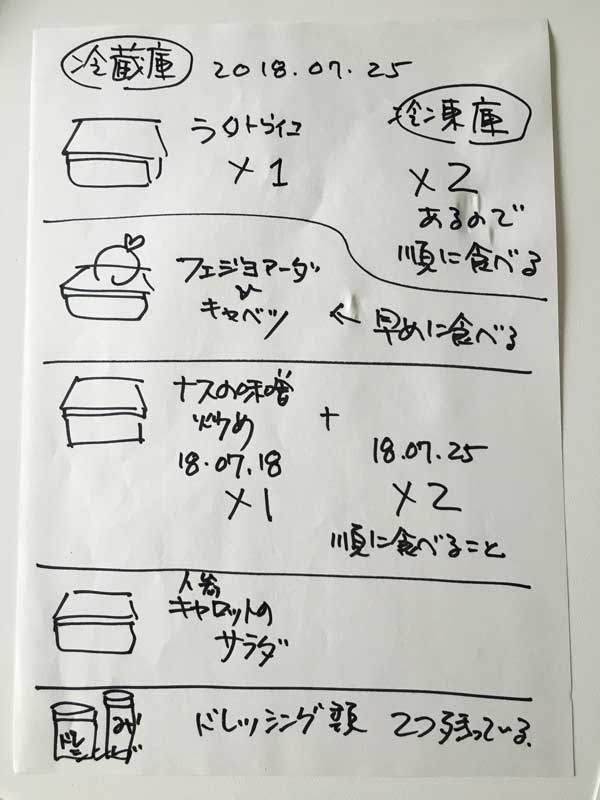 冷蔵庫 2018.07.25
冷凍庫
ラタトゥイユ
×1
×2
あるので
順に食べる
フェジョアーダ
と
キャベツ
← 早めに食べる
ナスの味噌
炒め
18.07.18
×1
+
18.07.25
×2
順に食べること
人参
キャロットの
サラダ
ドレッシング類 2つ残っている.